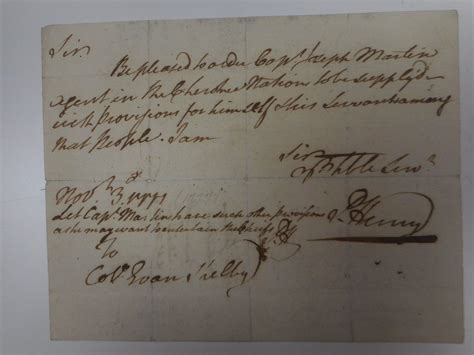 Sir
Be pleased to order Capt. Joseph Martin
Agent in the Cherokee Nation to be supplyd
with provisions for himself & his Servant among
that People. I am
Sir
Yr Hble Servt.
Novr 3d. 1777
P. Henry
Let Capt. Martin have such other provisions
as he may want to entertain the Chiefs P.H
To
Colo. Evan Shelby